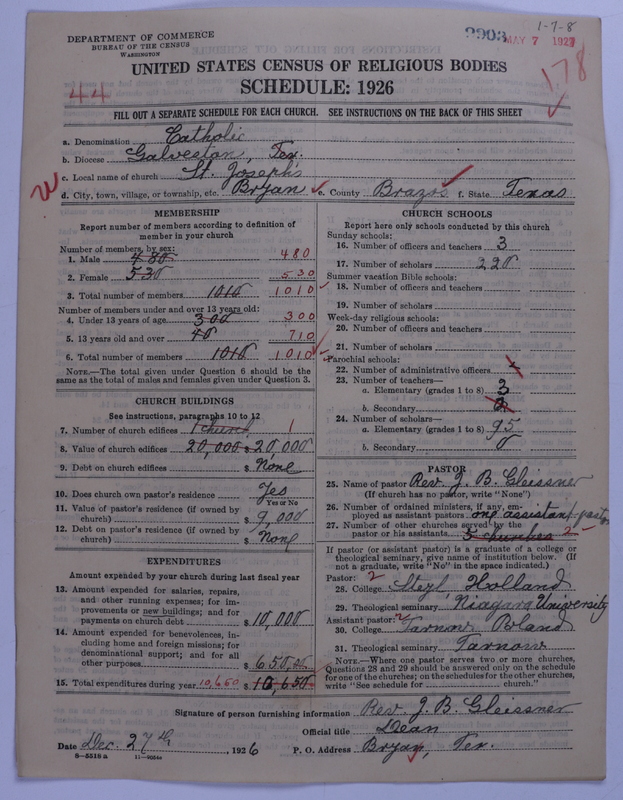 1-7-8
DEPARTMENT OF COMMERCE
BUREAU OF THE CENSUS
WASHINGTON
2903 MAY 7 1927
UNITED STATES CENSUS OF RELIGIOUS BODIES
SCHEDULE: 1926
44
178
FILL OUT A SEPARATE SCHEDULE FOR EACH CHURCH. SEE INSTRUCTIONS ON THE BACK OF THIS SHEET
a. Denomination Catholic
b. Diocese Galveston, Tex.
c. Local name of church St. Joseph's
d. City, town, village, or township, etc. Bryan e. County Brazos f. State Texas
MEMBERSHIP
Report number of members according to definition of
member in your church
Number of members, by sex:
1. Male 480 480
2. Female 530 530
3. Total number of members 1010 1010
Number of members under and over 13 years old:
4. Under 13 years of age 300 300
5. 13 years old and over 710
6. Total number of members 1010 1010
NOTE.—The total given under Question 6 should be the
same as the total of males and females given under Question 3.
CHURCH BUILDINGS
See instructions, paragraphs 10 to 12
7. Number of church edifices 1 church 1
8. Value of church edifices 20,000 $ 20,000
9. Debt on church edifices $ None
10. Does church own pastor's residence Yes
Yes or No
11. Value of pastor's residence (if owned by
church) $ 9,000
12. Debt on pastor's residence (if owned by
church) $ None
EXPENDITURES
Amount expended by your church during last fiscal year
13. Amount expended for salaries, repairs,
and other running expenses; for im-
provements or new buildings; and for
payments on church debt $ 10,000
14. Amount expended for benevolences, in-
cluding home and foreign missions; for
denominational support; and for all
other purposes $ 650.00
15. Total expenditures during year 10,650 $ 10,650
CHURCH SCHOOLS
Report here only schools conducted by this church
Sunday schools:
16. Number of officers and teachers 3
17. Number of scholars 220
Summer vacation Bible schools:
18. Number of officers and teachers
19. Number of scholars
Week-day religious schools:
20. Number of officers and teachers
21. Number of scholars
Parochial schools:
22. Number of administrative officers
23. Number of teachers—
a. Elementary (grades 1 to 8) 3
b. Secondary
24. Number of scholars—
a. Elementary (grades 1 to 8) 95
b. Secondary 0
PASTOR
25. Name of pastor Rev. J. B. Gleissner
(If church has no pastor, write "None")
26. Number of ordained ministers, if any, em-
ployed as assistant pastors one assistant pastor
27. Number of other churches served by the
pastor or his assistants 5 churches 2
If pastor (or assistant pastor) is a graduate of a college or
theological seminary, give name of institution below. (If
not a graduate, write "No" in the space indicated.)
Pastor: 2
28. College Steyl Holland
29. Theological seminary Niagara University
Assistant pastor: 2
30. College Tarnow Poland
31. Theological seminary Tarnow
NOTE.—Where one pastor serves two or more churches,
Questions 28 and 29 should be answered only on the schedule
for one of the churches; on the schedules for the other churches,
write "See schedule for church."
Signature of person furnishing information Rev. J. B. Gleissner
Official title Dean
Date Dec. 27th, 1926 P. O. Address Bryan, Tex.
8—5518 a 11—9054